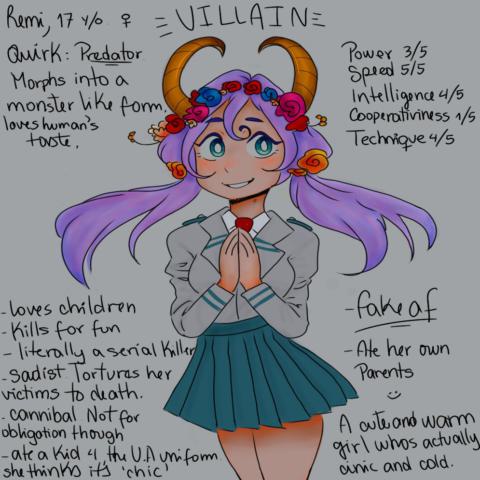 Remi, 17 y/o ♀
=VILLAIN=
Quirk: Predator
Morphs into a
monster like form.
loves human's
taste.
Power 3/5
Speed 5/5
Intelligence 4/5
Cooperativiness 1/5
Technique 4/5
-loves children
-Kills for fun
- literally a serial Killer
-sadist Tortures her
victims to death.
-cannibal Not for
obligation though
-ate a Kid 4 the U.A uniform
she thinks it's 'chic'
-fake af
-Ate her own
Parents
:)
A cute and warm
girl whos actually
cinic and cold.